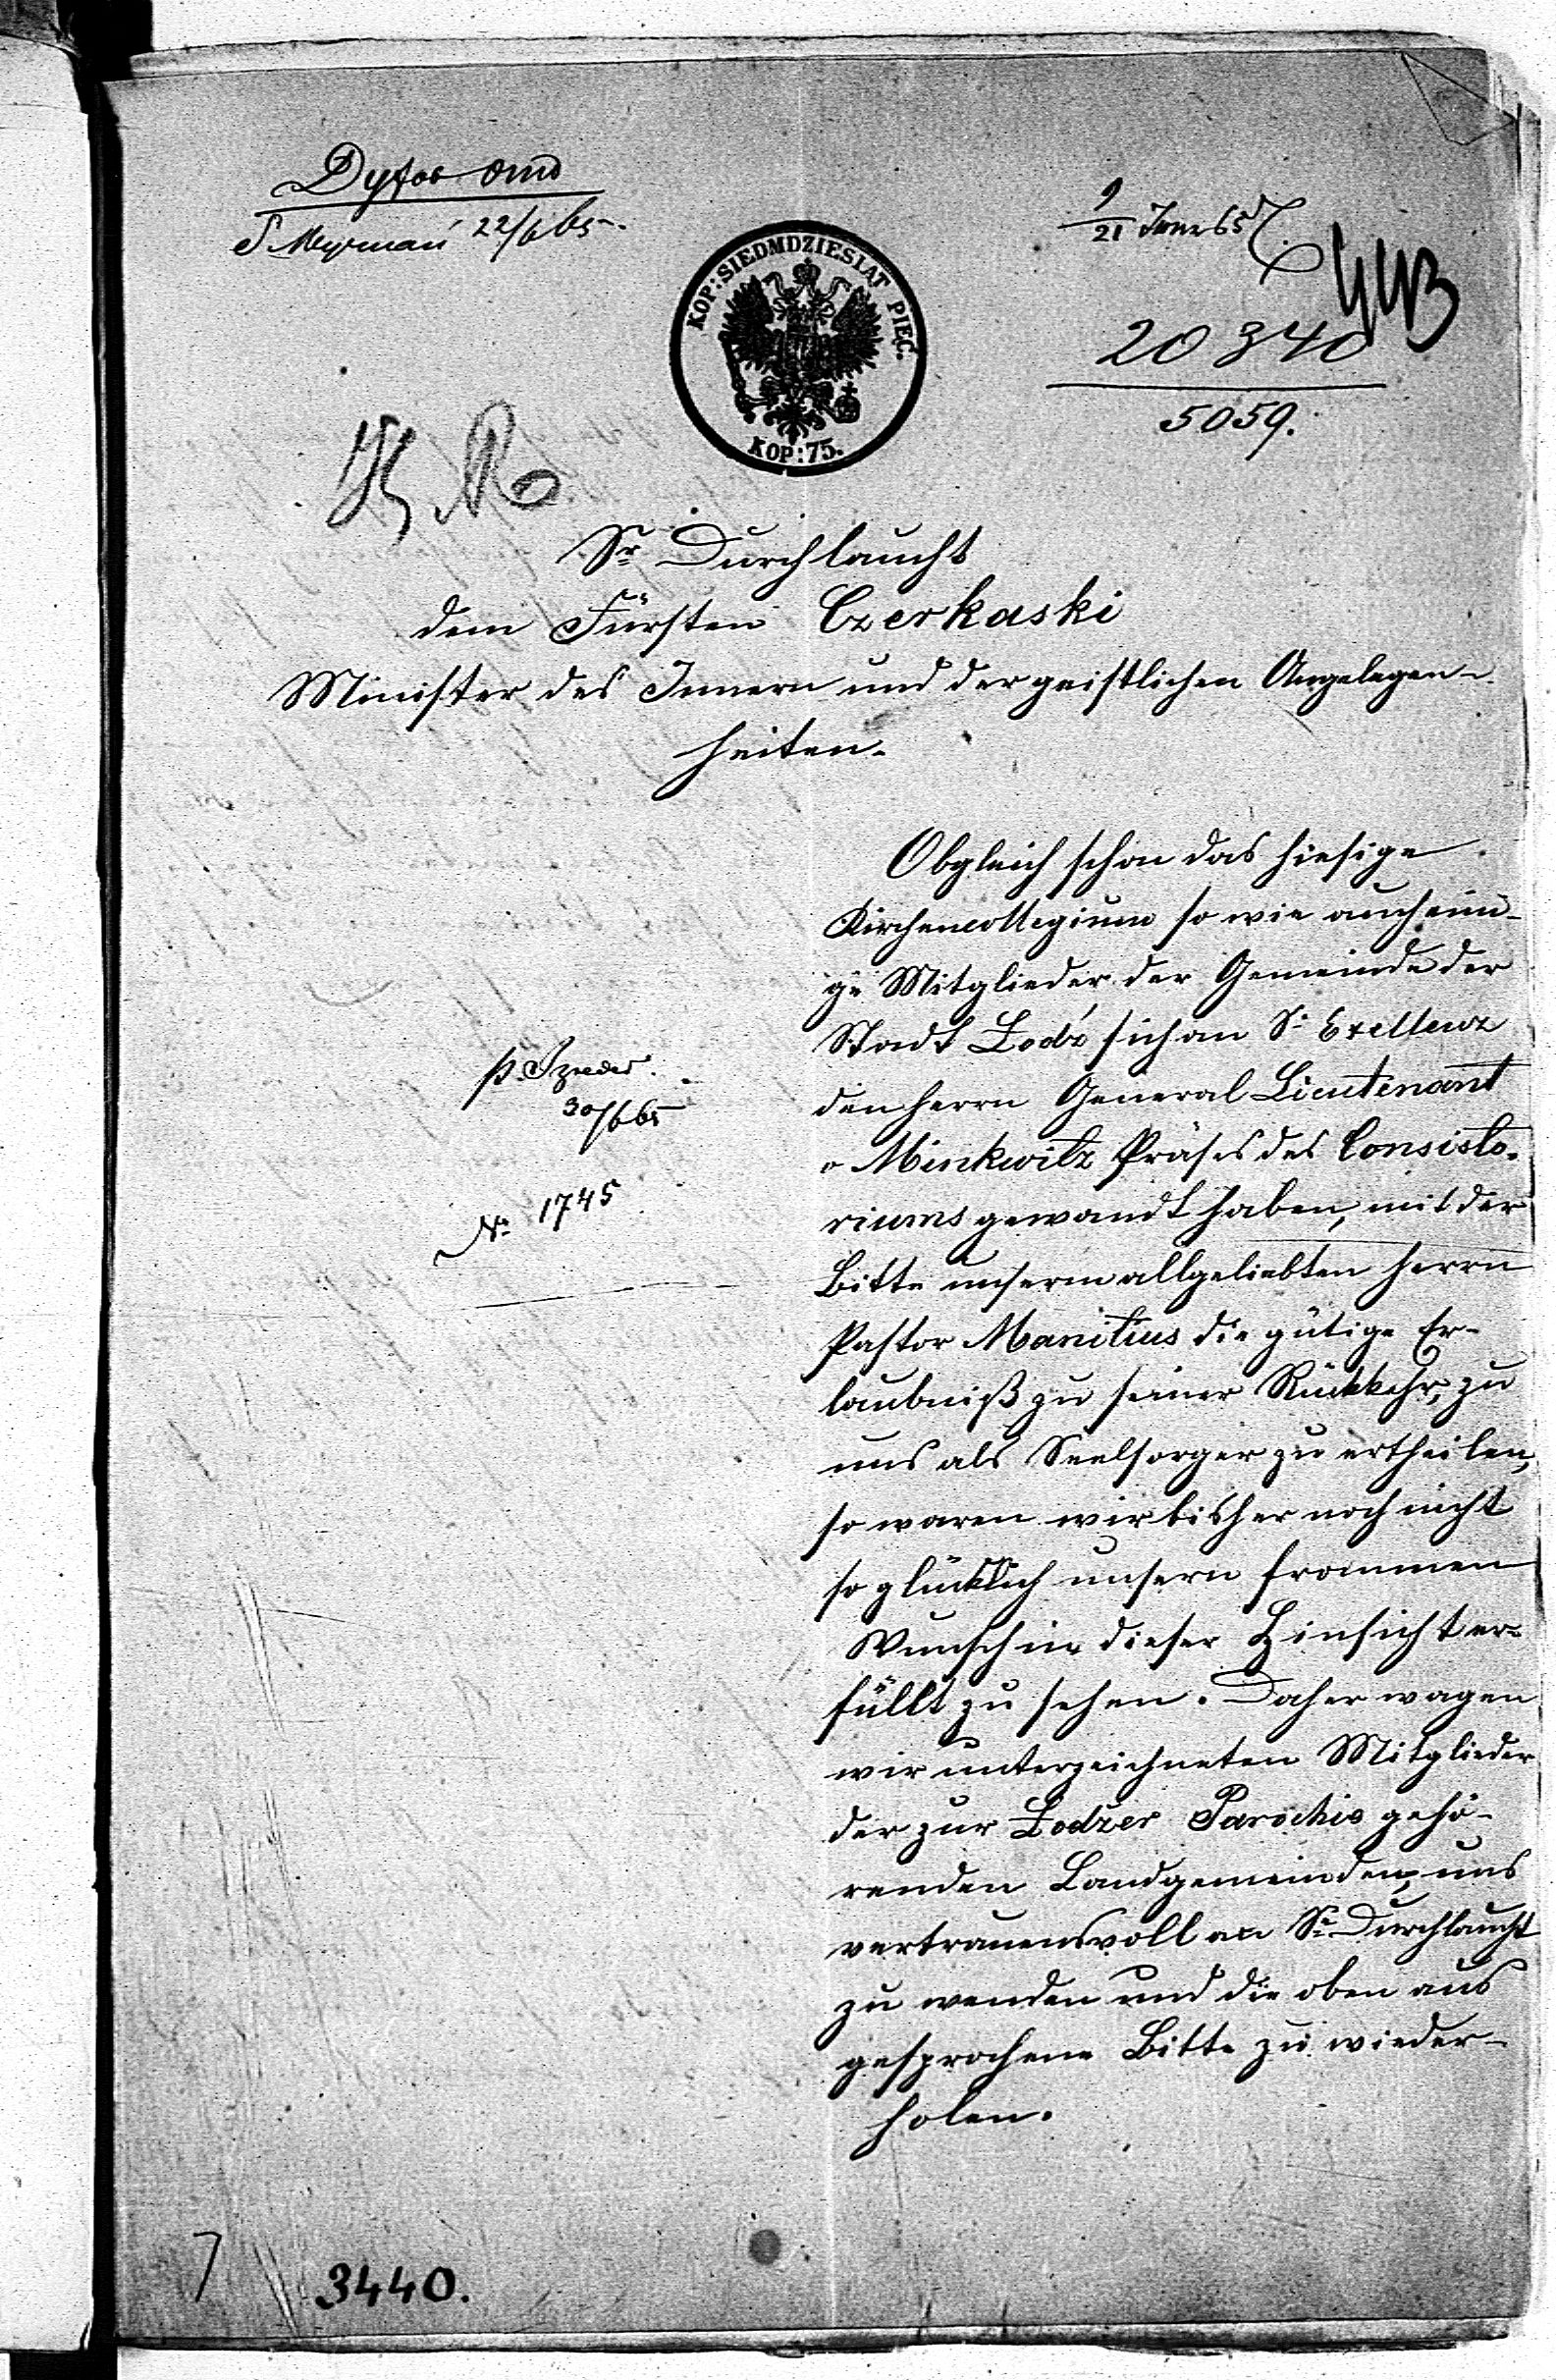 22/6 65
9/21 65
20340
5059.
KOP: SIEDMDZIESIAT PIĘĆ.
KOP: 75.
Sr Durchlaucht
dem Fürsten Czerkaski
Minister des Innern und der geistlichen Angelegen-
heiten.
Obgleich schon das hiesige
Kirchencollegium so wie auch eini-
ge Mitglieder der Gemeinde der
Stadt Łodź sich an Sr Exellenz
den Herrn General Lieutenant
v Minkwitz Präses des Consisto-
riums gewandt haben, mit der
Bitte unserm allgeliebten Herrn
Pastor Manitius die gütige Er-
laubniß zu seiner Rückkehr, zu
uns als Seelsorger zu ertheilen,
so waren wir bisher noch nicht
so glücklich unsern frommen
Wunsch in dieser Hinsicht er-
füllt zu sehen. Daher wagen
wir unterzeichneten Mitglieder
der zur Łodzer Parochie gehö-
renden Landgemeinden, uns
vertrauensvoll an Sr Durchlaucht
zu wenden und die oben aus
gesprochene Bitte zu wieder-
holen.
30/6 65
No 1745
3440.